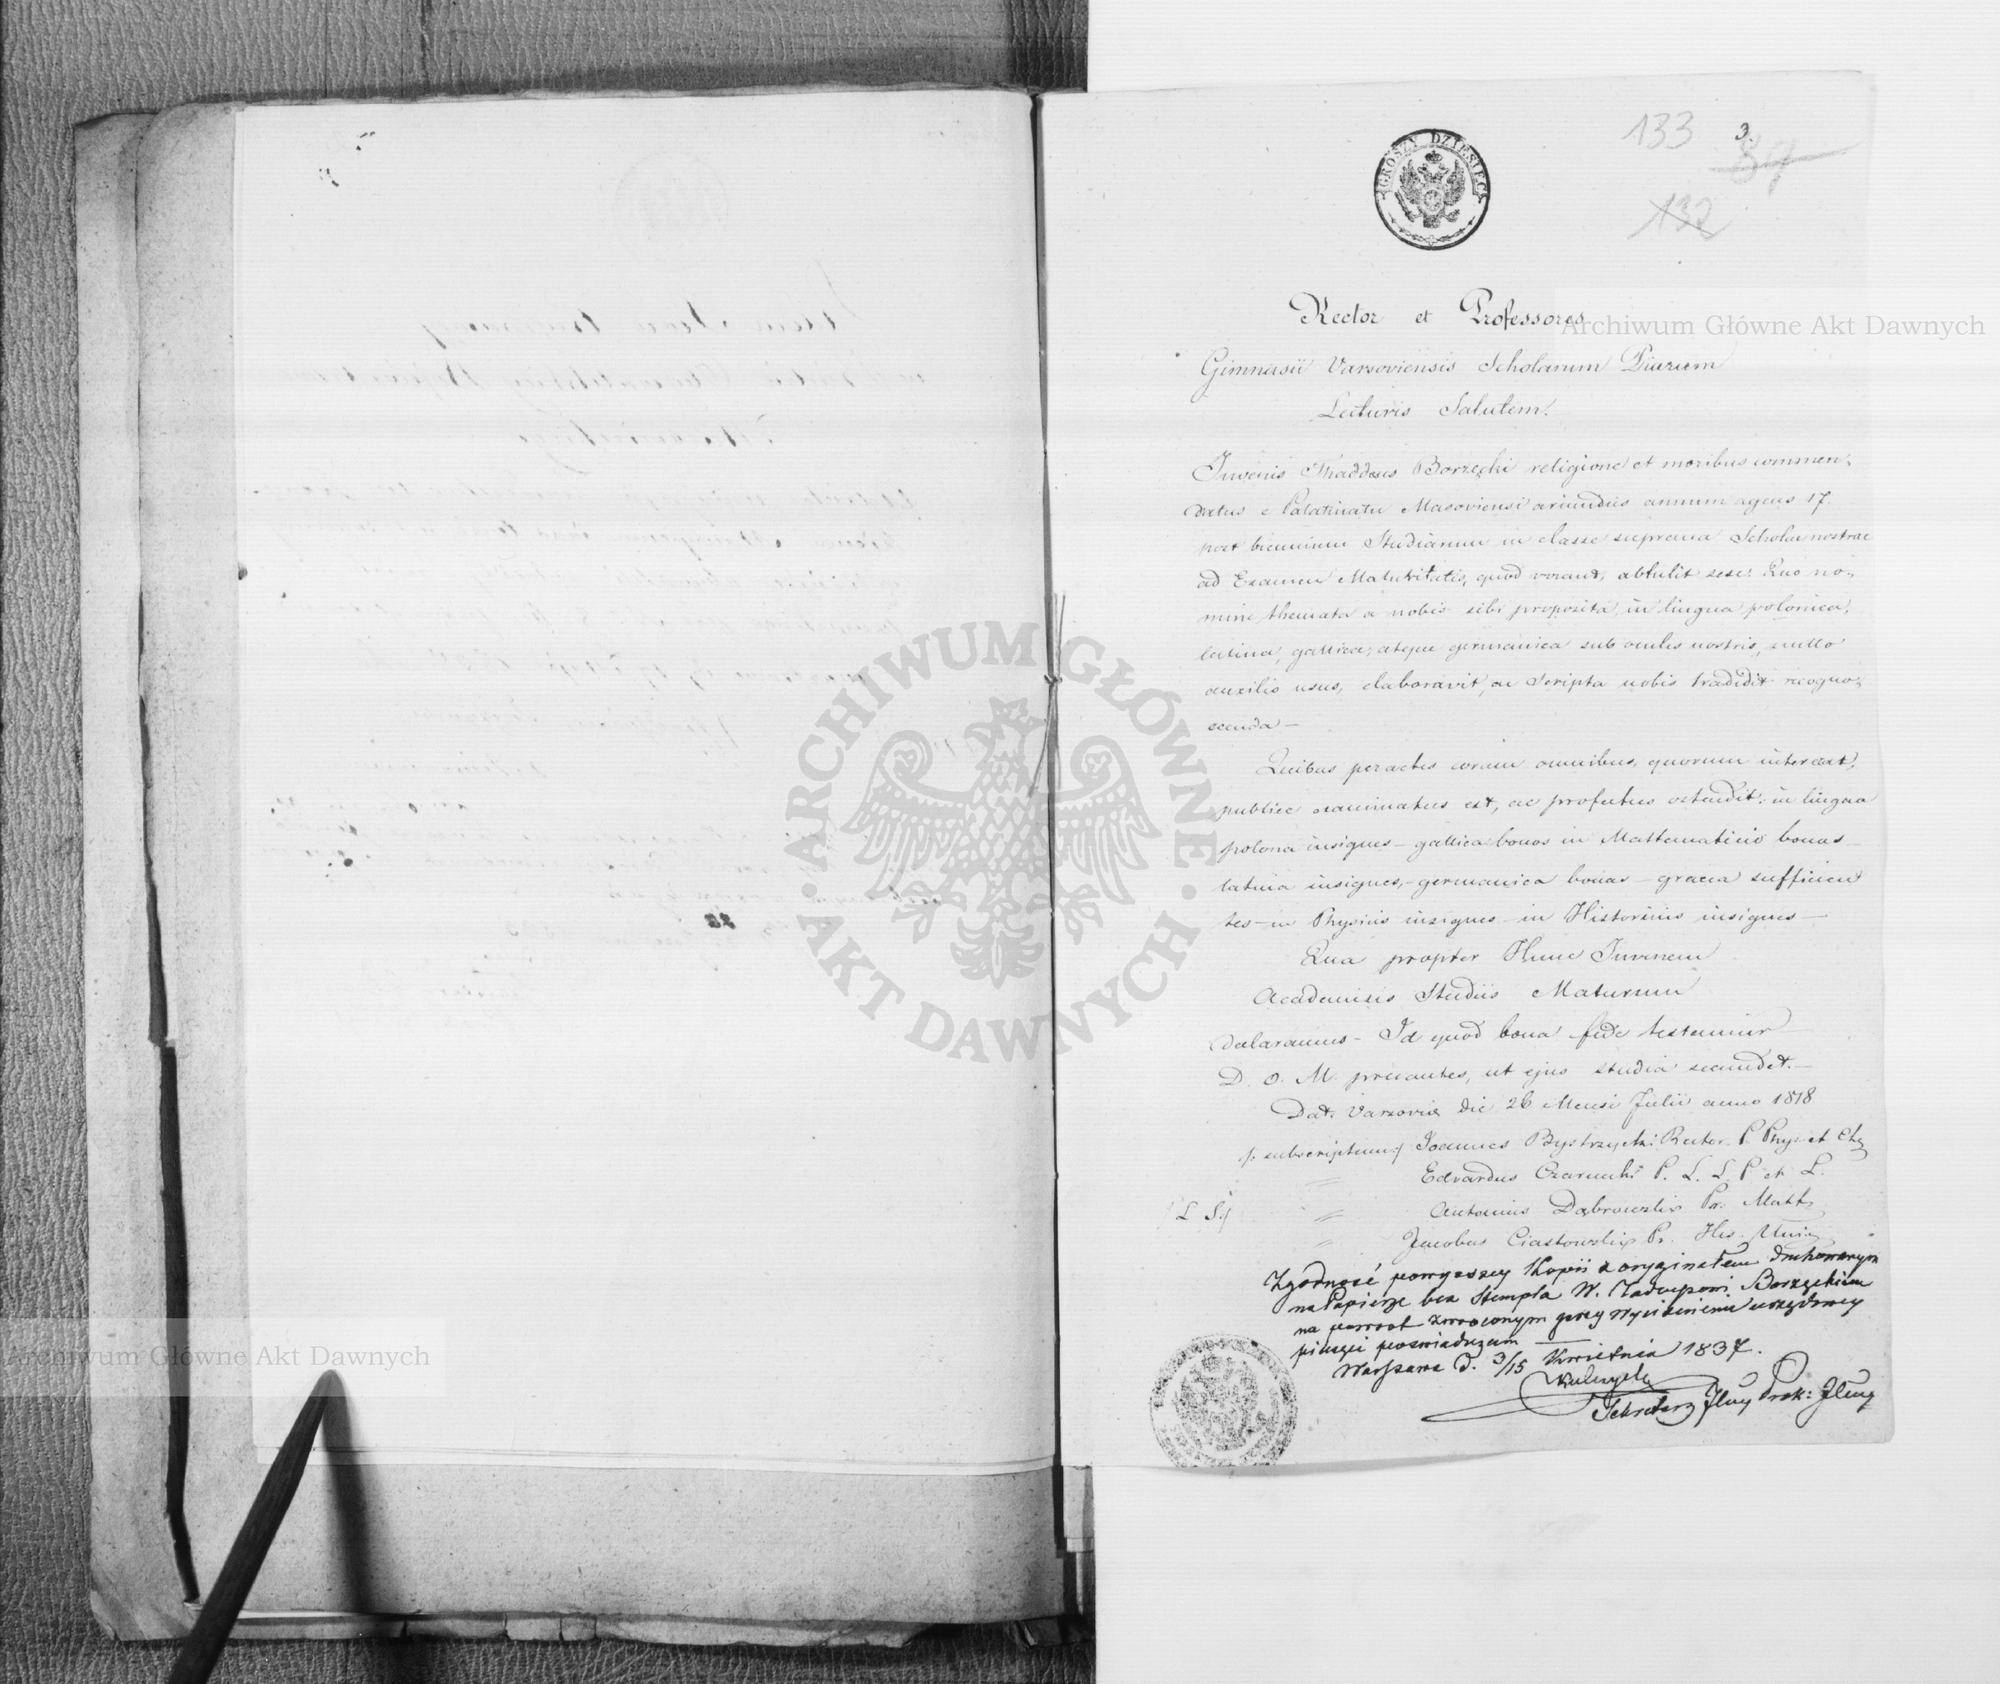 133
3.
89
132
GROSZY DZIESIĘĆ
Rector et Professores
Gimnasii Varsoviensis Scholarum Piarum
Lecturis Salutem.
Juvenis Thaddæus Borzęcki religione et moribus commen-
datus e Palatinatu Masoviensi oriundus annum agens 17.
post biennium Studiorum in classe suprema Scholæ nostrae
ad Examen Maturitatis, quod vocant, obtulit sese. Quo no-
mine themata a nobis sibi proposita, in lingua polonica,
latina, gallica, atque germanica sub oculis nostris, nullo
auxilio usus, elaboravit, ac Scripta nobis tradidit recogno-
scenda —
Quibus peractis coram omnibus, quorum interest,
publice examinatus est, ac profectus ostendit: in lingua
polona insignes — gallica bonos in Mattematicis bonos
latina insignes, — germanica bonos — græca sufficien
tes — in Physicis insignes — in Historicis insignes —
Qua propter Hunc Juvenem
Academicis Studiis Maturum
declaramus — Id quod bona fide testamur
D. O. M. precantes, ut ejus studia secundet. —
Dat. Varsoviæ die 26 Mensi Julii anno 1818
/: subscriptum:/ Joannes Bystrzycki Rector P. Phys. et
Edvardus Czarnecki P. L. L. P. et L.
/ L S:/ Antonius Dąbrowski Pr. Matt
Jacobus Ciastowski Pr. His. Univ
Zgodność powyższey Kopii z oryginałem drukowanym
na Papierze bez Stempla W. Tadeuszowi Borzęckiemu
na powrot zwroconym przy wyciśnieniu urzędowey
pieczęci poświadczam —
Warszawa d. 3/15 Kwietnia 1837.
Sekretarz Prok:
ARCHIWUM GŁÓWNE AKT DAWNYCH
Archiwum Główne Akt Dawnych
Archiwum Główne Akt Dawnych